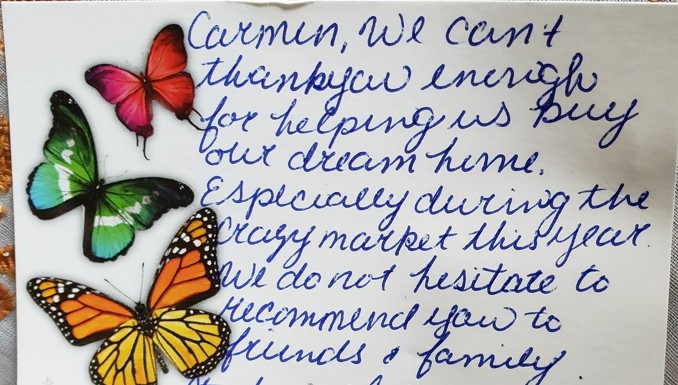 Carmen, We can't
thank you enough
for helping us buy
our dream home.
Especially during the
crazy market this year.
We do not hesitate to
recommend you to
friends & family.